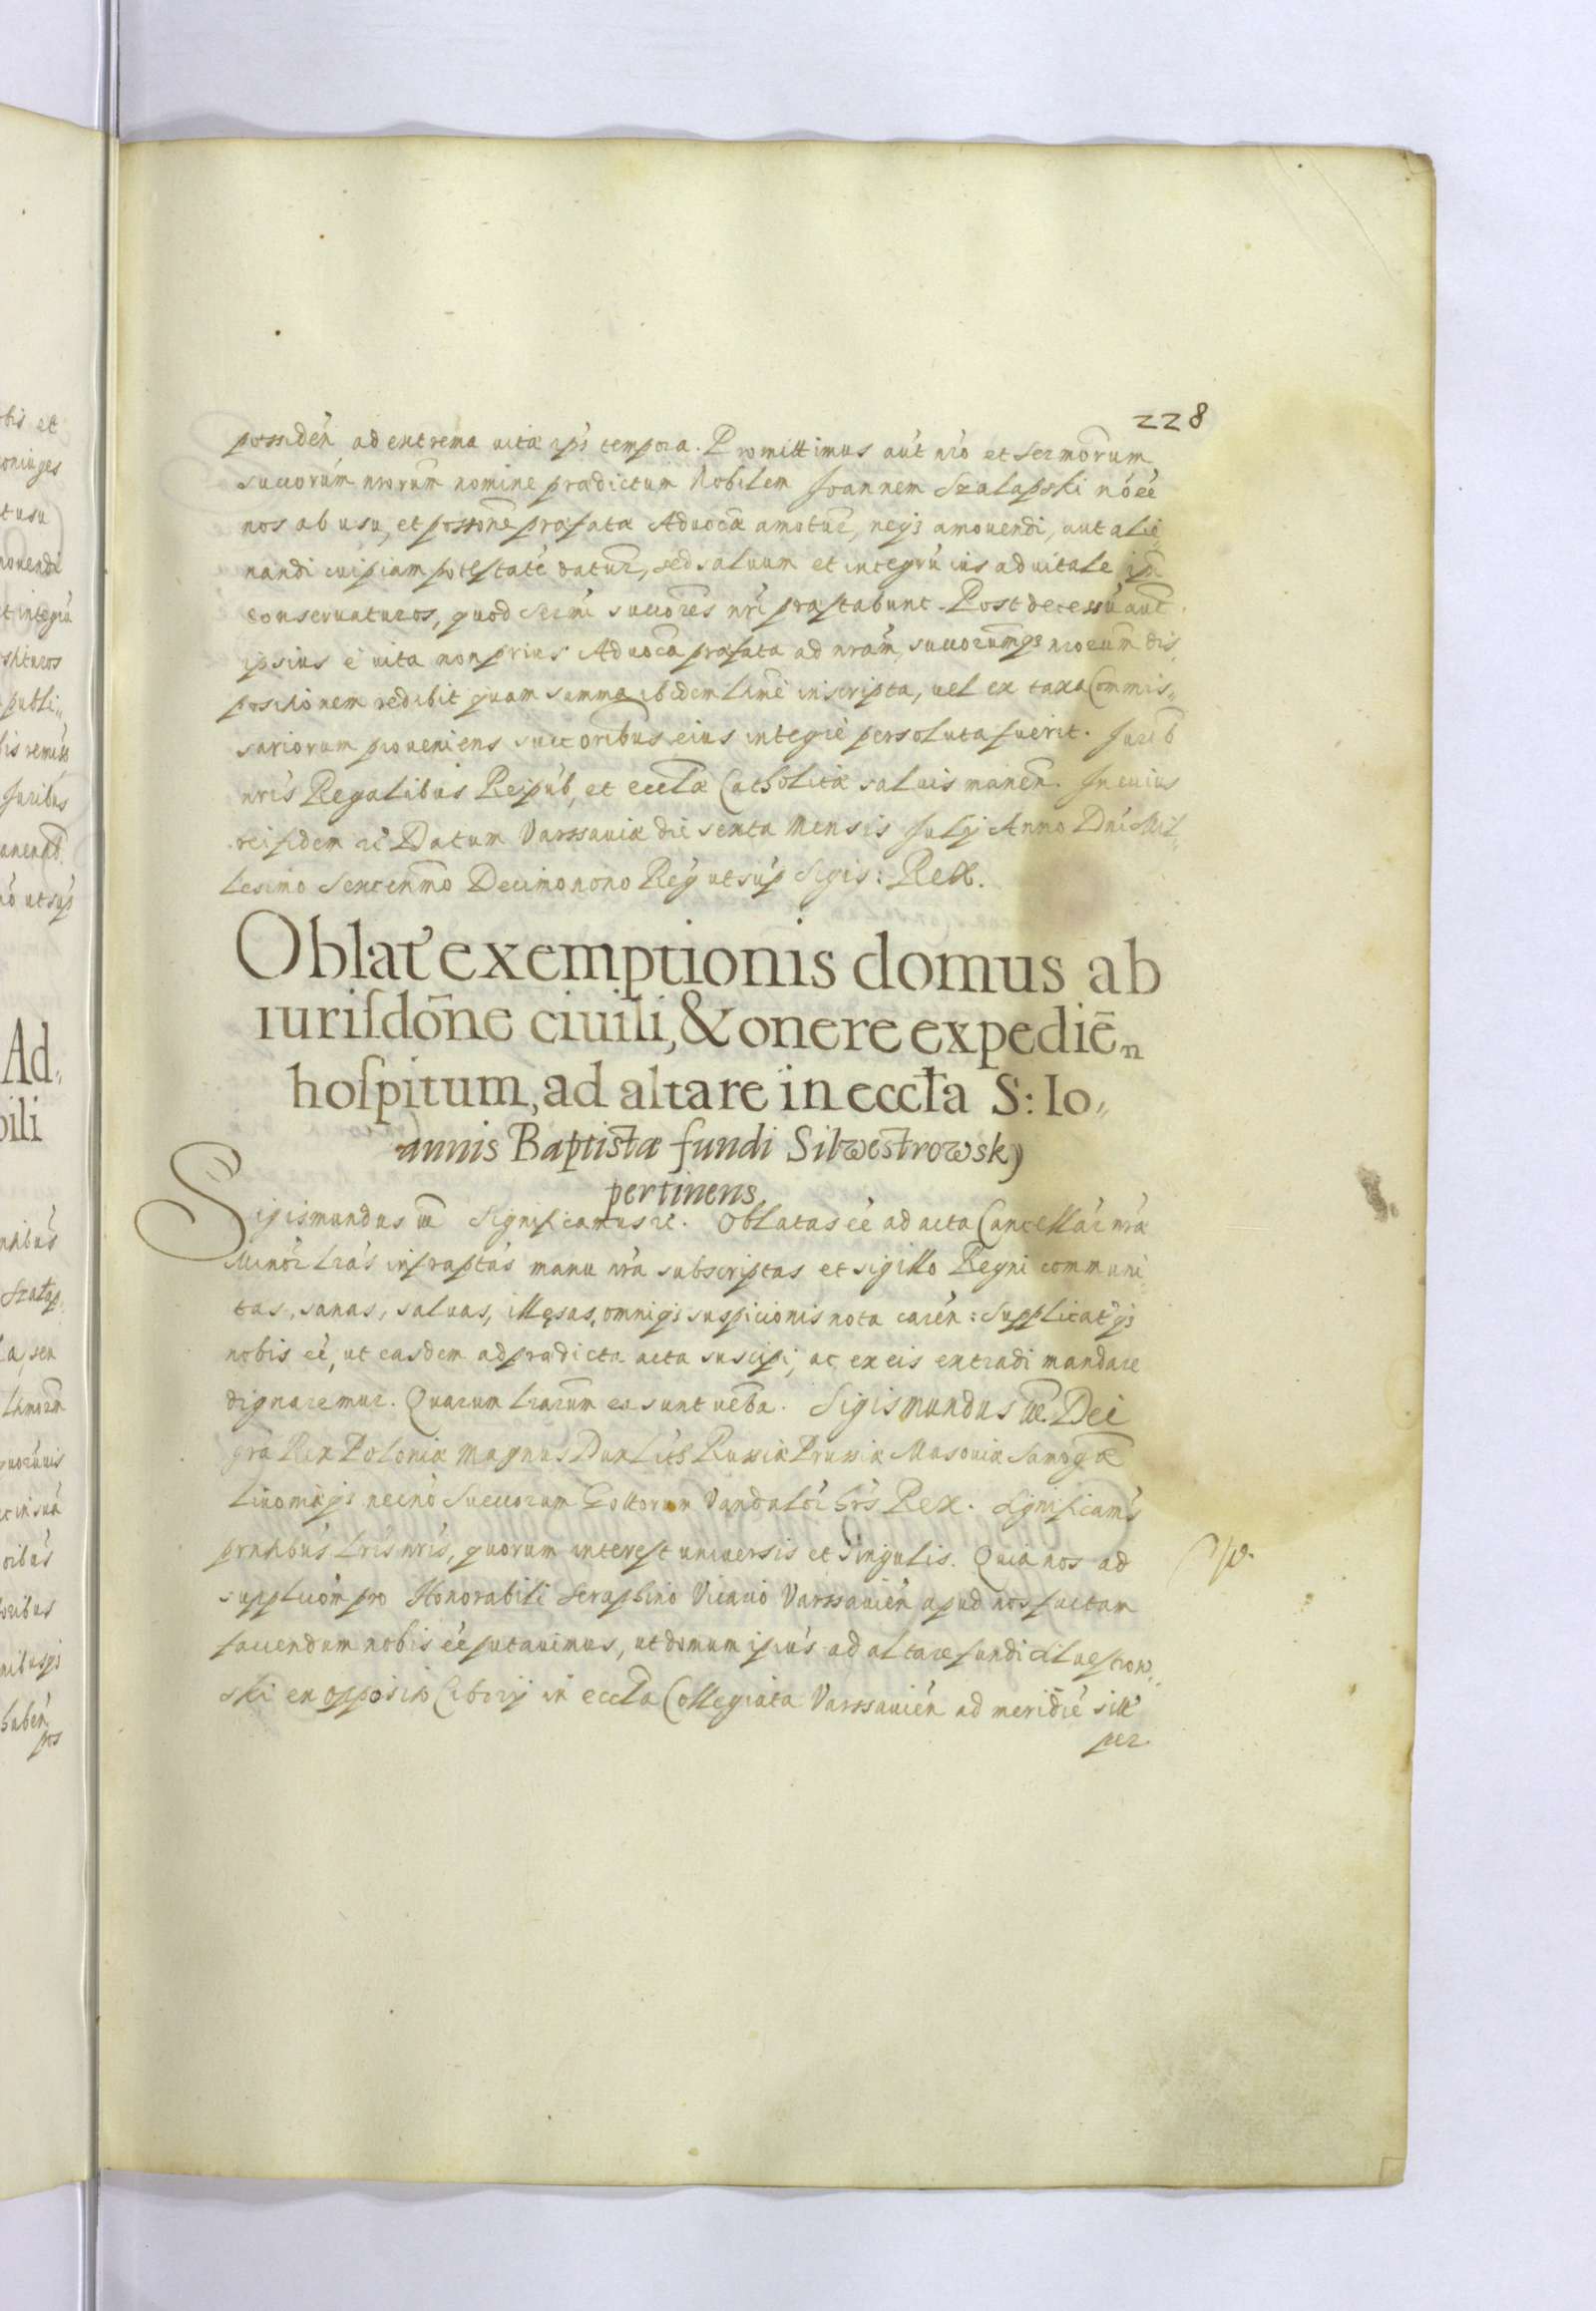 228
possiden̄ ad extrema uitæ ip̄s tempora. Promittimus aūt nr̄o et Sermōrum
succorūm nrorum nomine prædictum Nobilem Joannem Szalapski nō eē
nos ab usu, et possōne præfatæ Aduocǣ amoturos, neqꝫ amouendi, aut alie
nandi cuipiam potestatē daturos, sed saluum et integrū ius aduitale ip̄i
conseruaturos, quod Serm̄i succōres nr̄i præstabunt. Post decessū aūt
ipsius è uita non prius Aduocā præfata ad nram̄, succorumqꝫ nrorum dis„
positionem redibit quam summa ibidem ltmē inscripta, uel ex taxa Commis„
sariorum proueniens succoribus eius integrè persoluta fuerit. Jurib
nrīs Regalibus Reipūb, et eccl̄æ Catholicæ saluis manen̄. In cuius
rei fidem ꝛc̄ Datum Varssauiæ die sexta Mensis Julij Anno Dn̄i Mil„
lesimo Sexcenmo Decimonono Reḡ ut sup̄ Sigis: Rex.
Oblat̄ exemptionis domus ab
iuriſdōne ciuili, & onere expediē„n
hoſpitum, ad altare in eccl̄a S: Io„
annis Baptistæ fundi Silwestrowsk)
pertinens.
Sigismundus III Significamus ꝛc. Oblatas eē ad acta Cancellar̄ nr̄æ
Minōr lrās infraptās manu nr̄a subscriptas et sigillo Regni communi
tas, sanas, saluas, illęsas, omniqꝫ suspicionis nota carēn: Supplicat̄qꝫ
nobis eē, ut easdem ad prædicta acta suscipi, ac ex eis extradi mandare
dignaremur. Quarum lrarum ea sunt ueba. Sigismundus III. Dei
grā Rex Poloniæ Magnus Dux Lit̄ Russiæ Prussiæ Masouiæ Samogǣ
Liuoniæqꝫ necnō Succorum Gottorum Vandalōr hrs̄ Rex. Significam̄s
prntibūs lrīs nrīs, quorum interest uniuersis et singulis. Quia nos ad
supplicōm pro Honorabili Seraphino Vicario Varssauiēn apud nos factam
faciendum nobis eē putauimus, ut domum ipiūs ad altare fundi Siluestrow„
ski ex opposito Ciborij in eccl̄a Collegiata Varssauiēn ad meridiē sitt̄
per